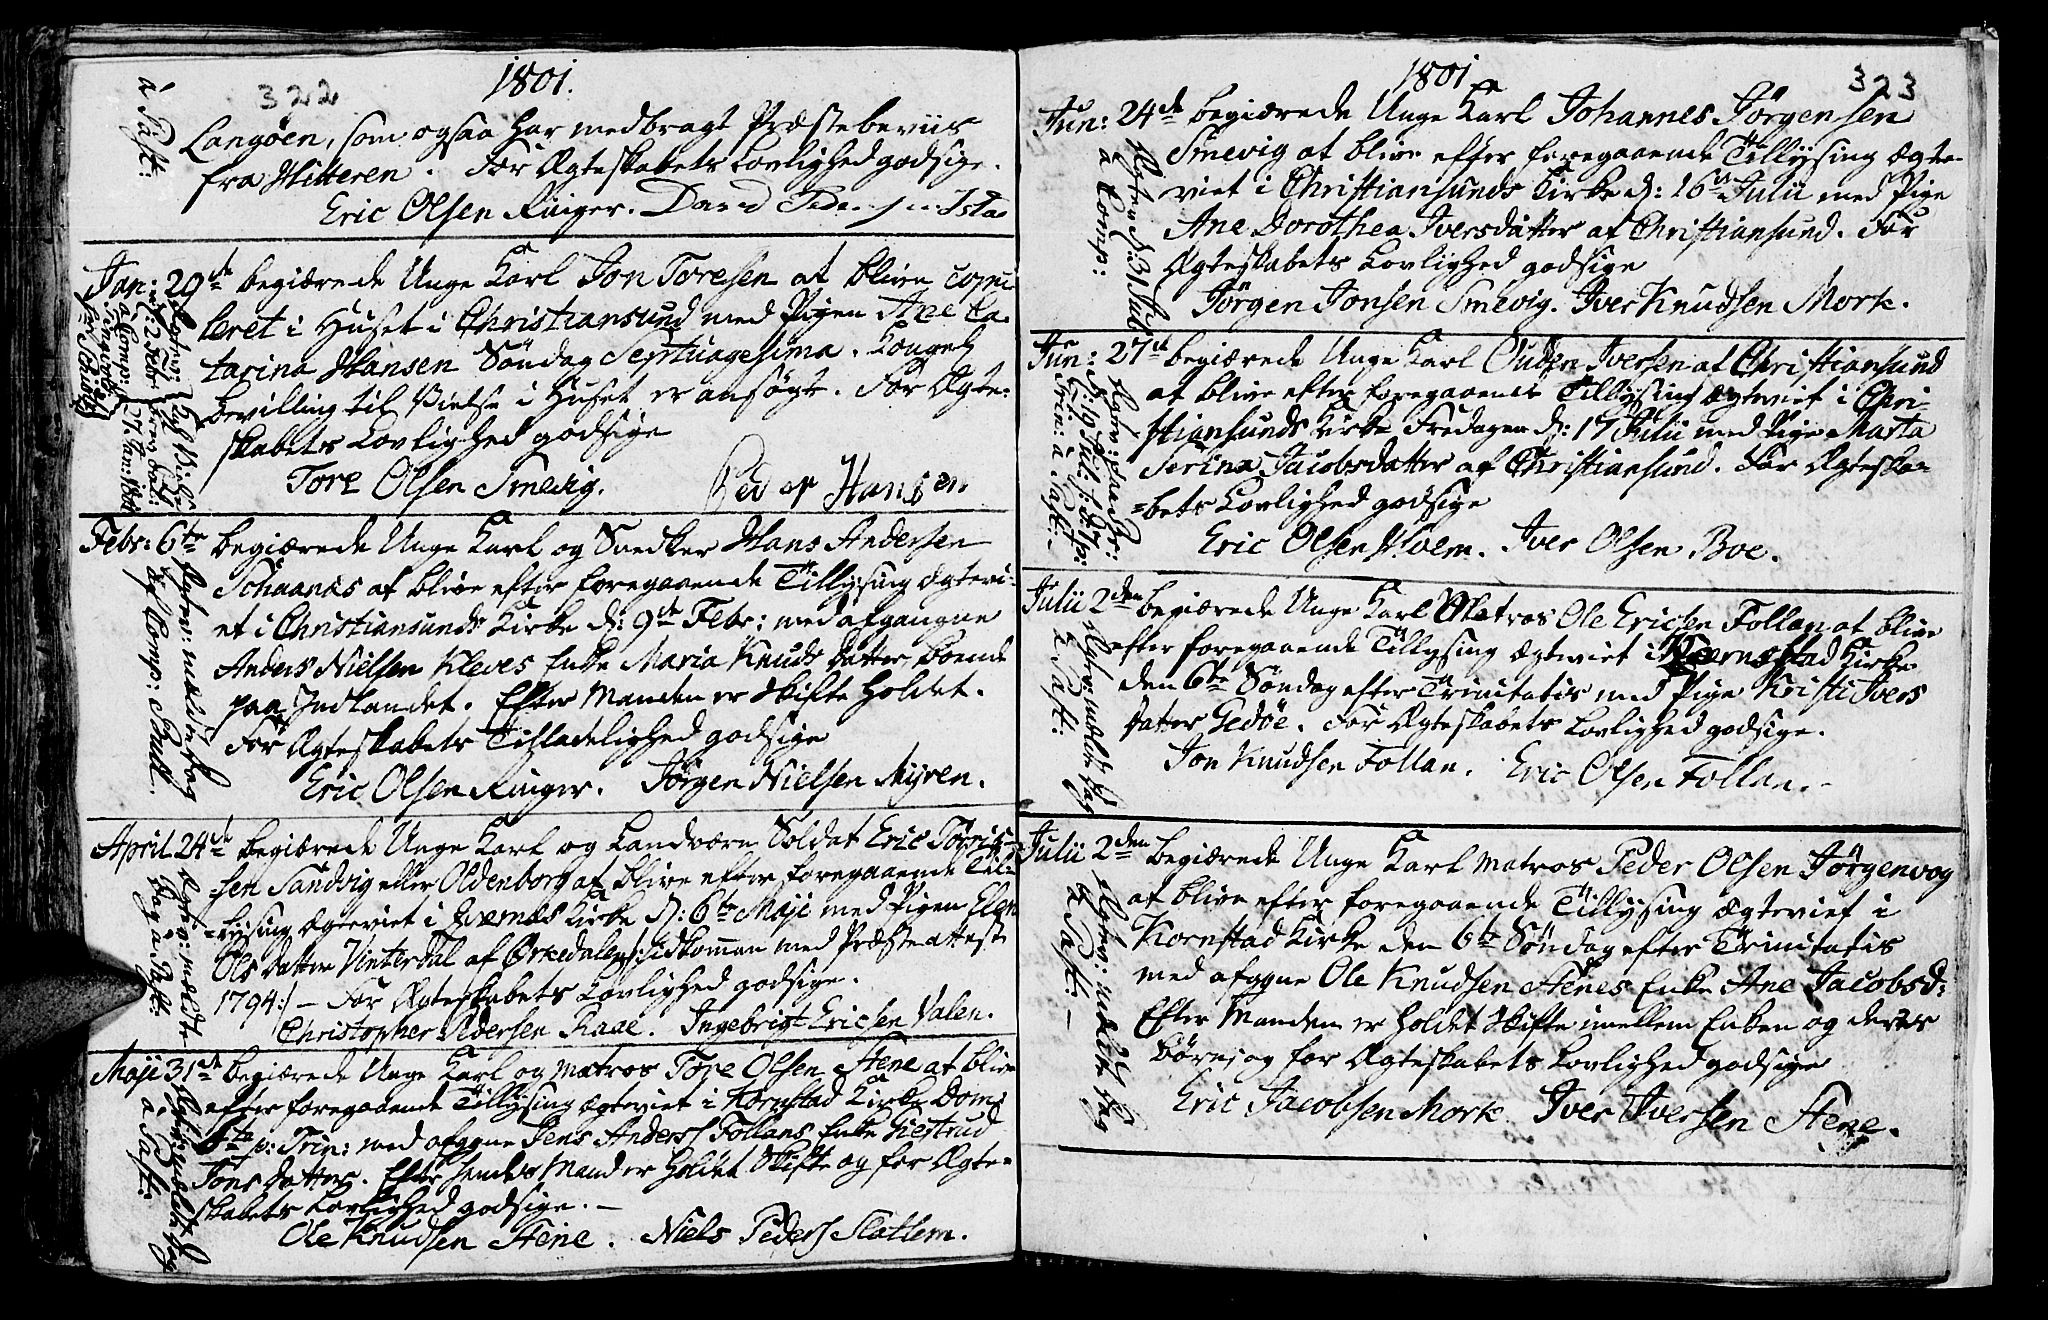 322
1801.
Langøen, som ogsaa har medbragt Præstebeviis
fra Hitteren. For Ægteskabets Lovlighed godsige.
Eric Olsen Ringer. David Pedersen
a Past:
Jan: 29de begiærede Unge Karl Jon Toresen at blive copu
leret i Huset i Christiansund med Pigen Ane Ca-
tarina Hansen Søndag Septuagesima. Kongel
bevilling til Vielse i Huset er ansøgt. For Ægte-
skabets Lovlighed godsige
Tore Olsen Smevig. Peder Hansen
Febr: 6te begiærede Unge Karl og Snedker Hans Andersen
Schaanes at blive efter foregaaende Tillysing ægtevi-
et i Christiansunds Kirke d: 9de Febr: med afgangne
Anders Nielsen Kleves Enke Maria Knudsdatter, boende
paa Indlandet. Efter Manden er Skifte holdet.
For Ægteskabets Tilladelighed godsige
Eric Olsen Ringer. Jørgen Nielsen Myren.
Ægtev: meldte Dag
af Comp:
April 24de begiærede Unge Karl og Landværn Soldat Eric
sen Sandvig eller Oldenborg at blive efter foregaaende Til-
lysing ægteviet i Qvernes Kirke d: 6te Maji med Pigen Elen
Olsdatter Vinterdal af Ørkedalen /:hidkommen med Præsteattest
1794:/ - For Ægteskabets Lovlighed godsige.
Christopher Pedersen Raae. Ingebrigt Ericsen Valen.
Ægtev: meldte
Dag a Past:
Maji 31de begiærede Unge Karl og matros Tore Olsen Stene at blive
efter foregaaende Tillysing ægteviet i Kornstad Kirke Dom:
p: Trin: med afgagne Jens Anders: Follans Enke Giertrud
Jonsdatter. Efter hendes Mand er holdet Skifte og for Ægte-
skabets Lovlighed godsige. -
Ole Knudsen Stene. Niels Peders: Slatlem.
Ægtev: meldte Dag
a Past:
323
1801
Jun: 24de begiærede Unge Karl Johannes Jørgensen
Smevig at blive efter foregaaende Tillysing ægte-
viet i Christiansunds Kirke d: 16de Julii med Pige
Ane Dorothea Iversdatter af Christiansund. For
Ægteskabets Lovlighed godsige
Jørgen Jonsen Smevig. Iver Knudsen Mork.
Ægtev: d: 31 Jul:
a Comp:
Jun: 27de begiærede Unge Karl Ouden Iversen af Christiansund
at blive efter foregaaende Tillysing ægteviet i Chri-
stiansunds Kirke Fredagen d: 17 Julii med Pige Marta
Serina Jacobsdatter af Christiansund. For Ægteska-
bets Lovlighed godsige
Eric Olsen Hoem. Iver Olsen Boe.
Julii 2den begiærede Unge Karl Matros Ole Ericsen Follan at blive
efter foregaaende Tillysing ægteviet i Kornstad Kirke
den 6te Søndag efter Trinitatis med Pige Kristi Ivers
datter Gedøe. For Ægteskabets Lovlighed godsige.
Jon Knudsen Follan. Eric Olsen Follan. -
Ægtev: meldte Dag
a Past:
Julii 2den begiærede Unge Karl matros Peder Olsen Jørgenvog
at blive efter foregaaende Tillysing ægteviet i
Kornstad Kirke den 6te Søndag efter Trinitatis
med afgagne Ole Knudsen Stenes Enke Ane Jacobsd:
Efter Manden er holdet Skifte imellem Enken og deres
Børn, og for Ægteskabets Lovlighed godsige
Eric Jacobsen Mork. Iver Iversen Stene.
Ægtev: meldte Dag
a Past: -